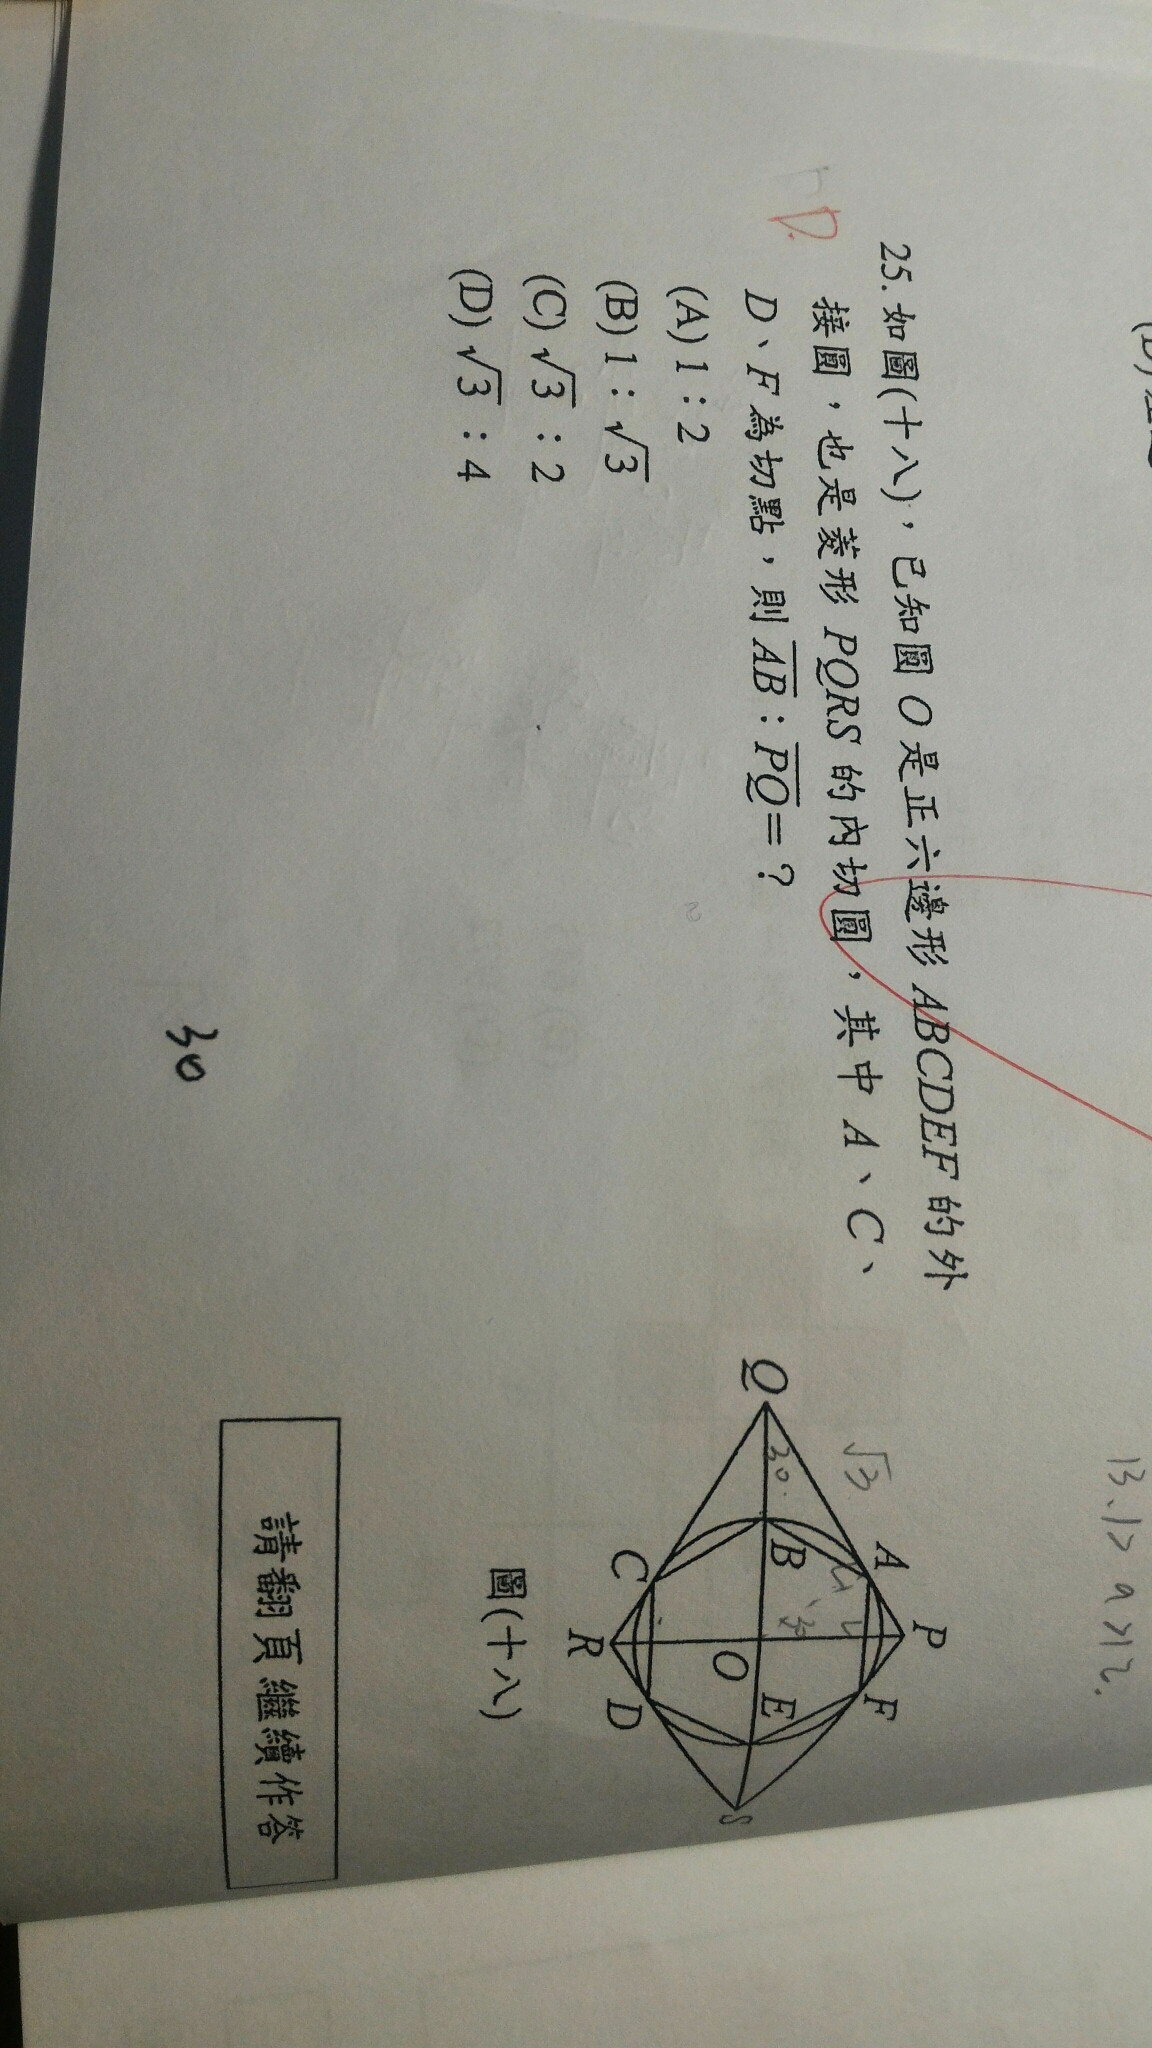 25. 如圖(十八)，已知圓 O 是正六邊形 ABCDEF 的外
接圓，也是菱形 PQRS 的內切圓，其中 A、C、
D、F 為切點，則 AB : PQ = ?
(A) 1 : 2
(B) 1 : √3
(C) √3 : 2
(D) √3 : 4
D.
13. 1> a >12.
√3
30
P
A
F
Q
B
O
E
S
C
D
R
圖(十八)
30
請翻頁繼續作答